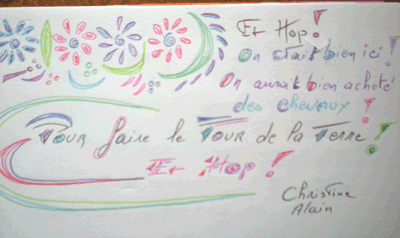 Et Hop!
On était bien ici!
On aurait bien acheté
des chevaux!
Pour faire le Tour de la Terre!
Et Hop!
Christine
Alain